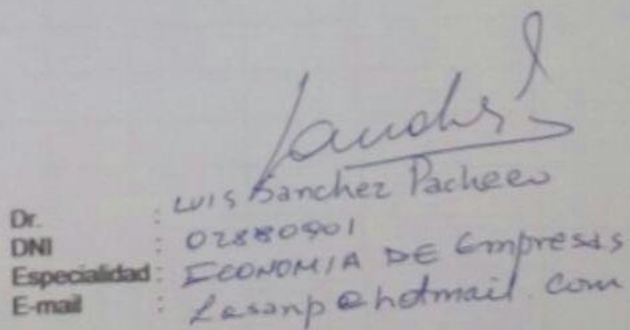 Dr. : Luis Sanchez Pacheco
DNI : 02880901
Especialidad : ECONOMIA DE Empresas
E-mail : Lasanp@hotmail.com